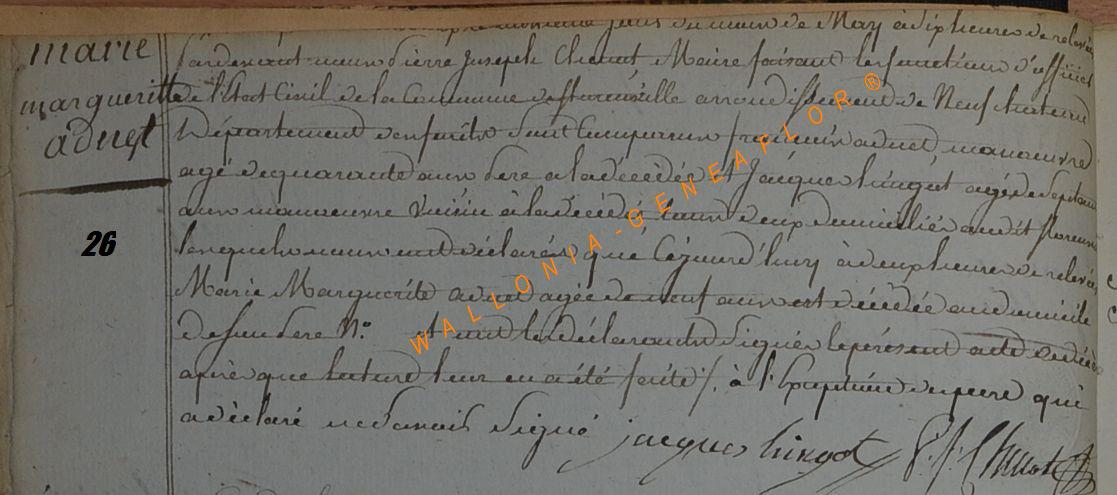 marie
margueritte
adnet
26
jours du mois de May à dix heures de relevée
Pardevant nous Pierre Joseph Maire faisant les fonctions d'officier
de l'Etat Civil de la Commune arrondissement de Neufchateau
Département sont Comparus adnet, manoeuvre
agé de quarante ans Pere a la décédée et Jacques agé de
ans manoeuvre Voisin à la décédé tous deux domiciliés audit
lesquels nous ont déclaré que Cejourd'huy à heures de relevée,
Marie Marguerite adnet agée de neuf ans est décédée au domicile
de son Pere N.o et ont les déclarants Signés le présent acte de décès
après que lecture leur en a été faite à l'Exception du pere qui
a déclaré ne Savoir Signé jacques hingot P. J.
WALLONIA-GENEAFLOR®